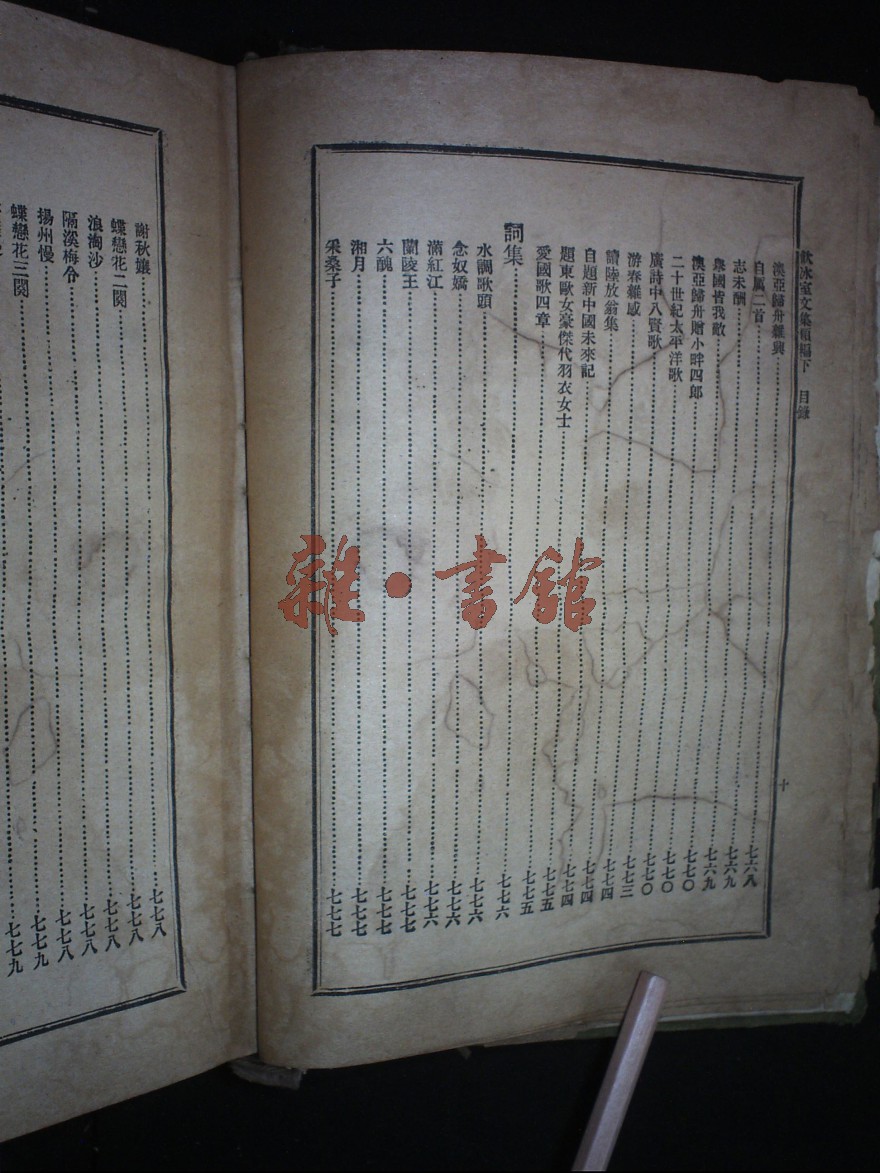 飲冰室文集類編下 目錄
十
澳亞歸舟雜興 七六八
自厲二首 七六九
志未酬 七六九
衆國皆我敵 七七〇
澳亞歸舟贈小畔四郎 七七〇
二十世紀太平洋歌 七七〇
廣詩中八賢歌 七七三
游春雜感 七七四
讀陸放翁集 七七四
自題新中國未來記 七七四
題東歐女豪傑代羽衣女士 七七五
愛國歌四章 七七五
詞集 七七六
水調歌頭 七七六
念奴嬌 七七六
滿紅江 七七六
蘭陵王 七七七
六醜 七七七
湘月 七七七
采桑子 七七七
謝秋孃 七七八
蝶戀花二闋 七七八
浪淘沙 七七八
隔溪梅令 七七八
揚州慢 七七八
蝶戀花三闋 七七九
七七九
雜·書館